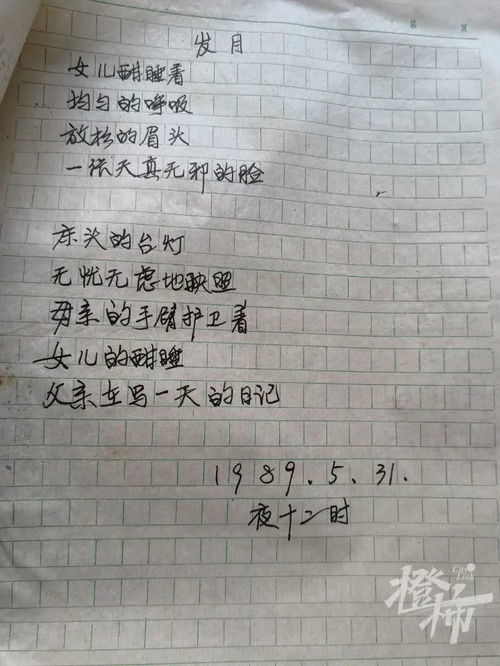 第 页
岁月
女儿酣睡着
均匀的呼吸
放松的眉头
一张天真无邪的脸
床头的台灯
无忧无虑地映照
母亲的手臂护卫着
女儿的酣睡
父亲在写一天的日记
1989.5.31.
夜十二时
City Link
橙柿